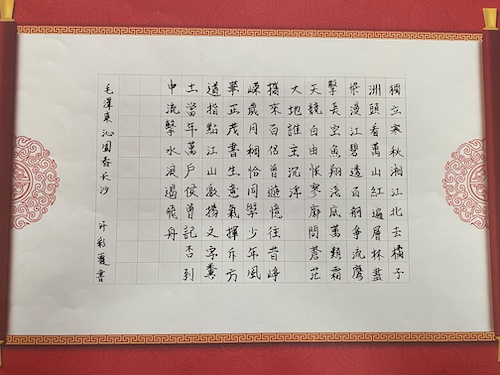 獨立寒秋湘江北去橘子
洲頭看萬山紅遍層林盡
染漫江碧透百舸争流鷹
擊長空魚翔淺底萬類霜
天競自由悵寥廓問蒼茫
大地誰主沉浮
攜來百侣曾遊憶往昔崢
嶸歲月稠恰同學少年風
華正茂書生意氣揮斥方
遒指點江山激揚文字糞
土當年萬戶侯曾記否到
中流擊水浪遏飛舟
毛澤東沁園春长沙 许彩夏書